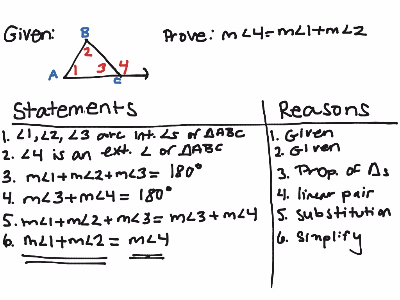 Given: Prove: m∠4=m∠1+m∠2
B
2
A 1 3 4
C
Statements Reasons
1. ∠1, ∠2, ∠3 are int. ∠s of ΔABC 1. Given
2. ∠4 is an ext. ∠ of ΔABC 2. Given
3. m∠1+m∠2+m∠3= 180° 3. Prop. of Δs
4. m∠3+m∠4=180° 4. linear pair
5. m∠1+m∠2+m∠3=m∠3+m∠4 5. substitution
6. m∠1+m∠2=m∠4 6. Simplify